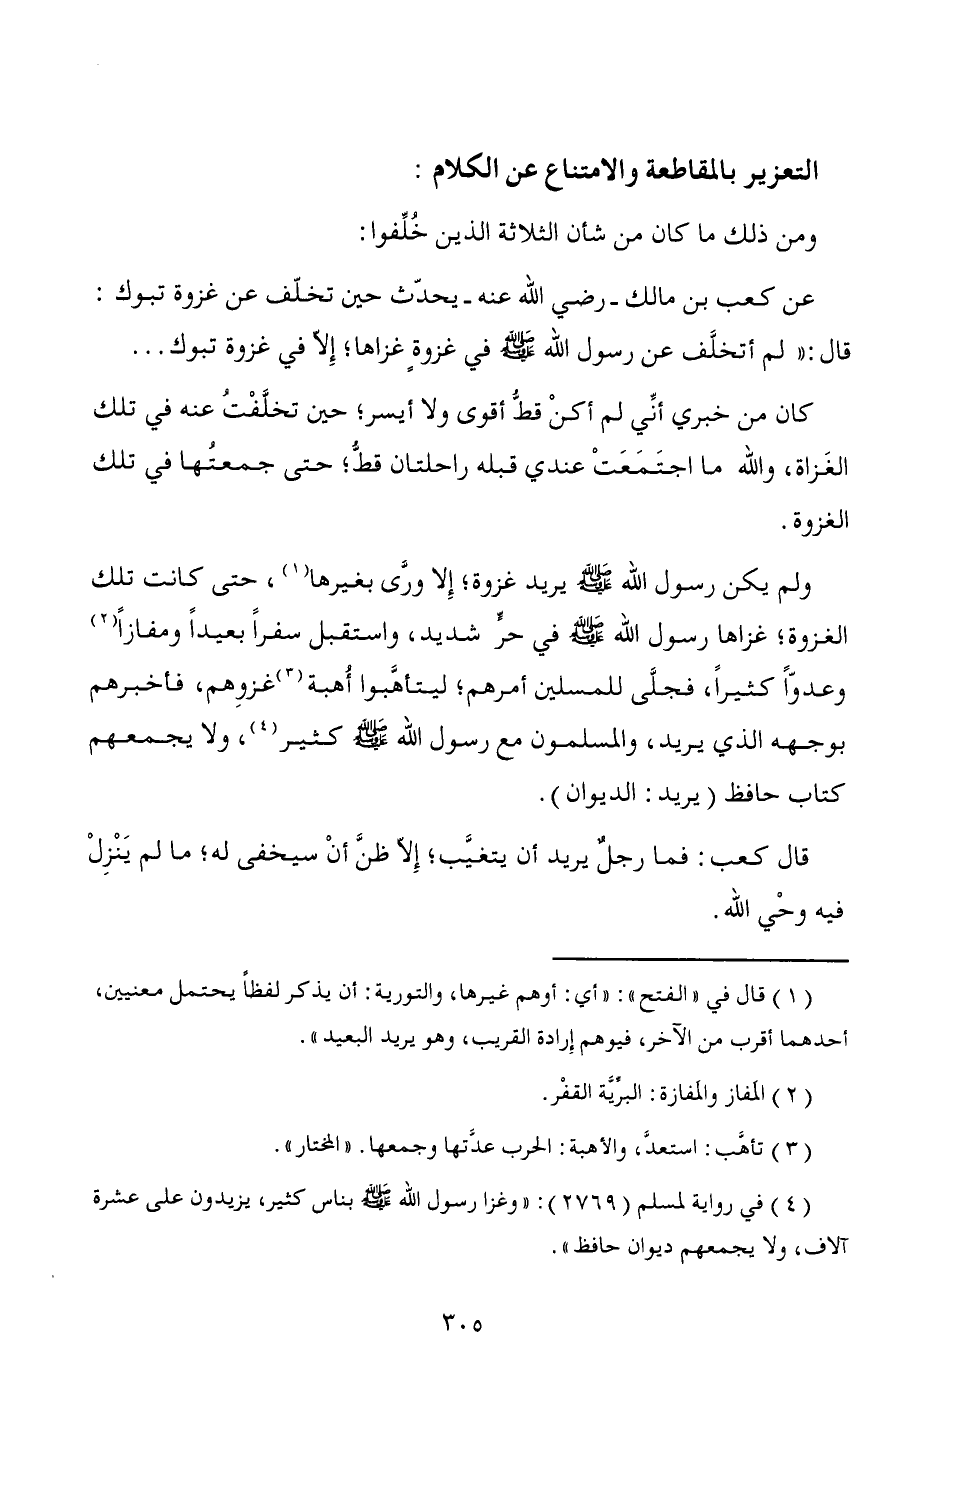 التعزير بالمقاطعة والامتناع عن الكلام :
ومن ذلك ما كان من شأن الثلاثة الذين خُلِّفوا:
عن كعب بن مالك ـ رضي الله عنه ـ يحدّث حين تخلّف عن غزوة تبوك :
قال: « لم أتخلَّف عن رسول الله ﷺ في غزوةٍ غزاها؛ إلاّ في غزوة تبوك...
كان من خبري أنِّي لم أكنْ قطُّ أقوى ولا أيسر؛ حين تخلَّفْتُ عنه في تلك
الغَزاة، والله ما اجتَمَعَتْ عندي قبله راحلتان قطُّ؛ حتى جمعتُها في تلك
الغزوة .
ولم يكن رسول الله ﷺ يريد غزوة؛ إلا ورَّى بغيرها(١)، حتى كانت تلك
الغزوة؛ غزاها رسول الله ﷺ في حرٍّ شديد، واستقبل سفراً بعيداً ومفازاً(٢)
وعدوّاً كثيراً، فجلَّى للمسلين أمرهم؛ ليتأهَّبوا أُهبة(٣) غزوِهم، فأخبرهم
بوجهه الذي يريد، والمسلمون مع رسول الله ﷺ كثير(٤)، ولا يجمعهم
كتاب حافظ ( يريد : الديوان ).
قال كعب: فما رجلٌ يريد أن يتغيَّب؛ إلاّ ظنَّ أنْ سيخفى له؛ ما لم يَنْزِلْ
فيه وحْي الله.
( ١ ) قال في « الفتح» : «أي: أوهم غيرها، والتورية: أن يذكر لفظاً يحتمل معنيين،
أحدهما أقرب من الآخر، فيوهم إرادة القريب، وهو يريد البعيد».
( ٢ ) المَفاز والمَفازة: البرِّيَّة القفْر.
( ٣ ) تأهَّب: استعدَّ، والأهبة: الحرب عدَّتها وجمعها. «المختار».
( ٤ ) في رواية لمسلم ( ٢٧٦٩ ): « وغزا رسول الله ﷺ بناس كثير، يزيدون على عشرة
آلاف، ولا يجمعهم ديوان حافظ».
٣٠٥